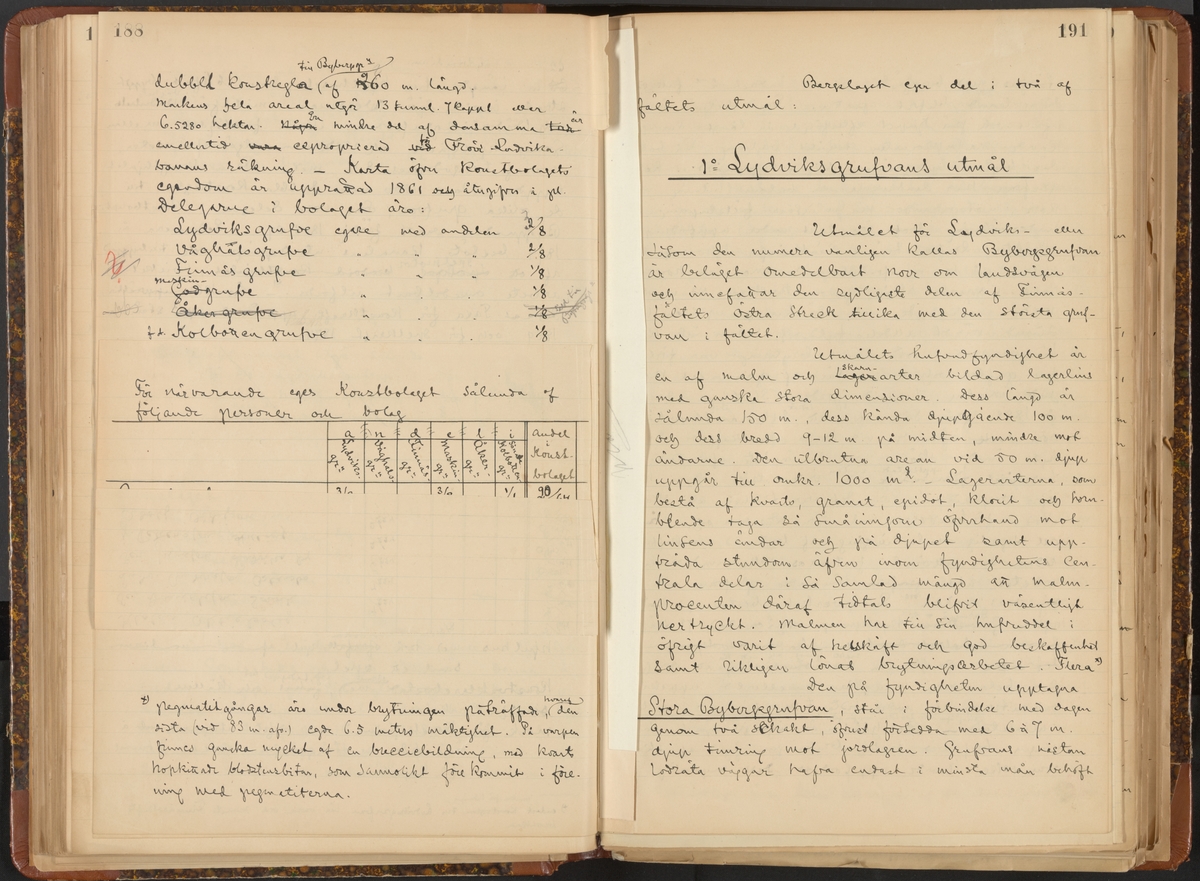 188
till Bybergsgr
dubbla konstregla (af 260 m. längd.
Markens hela areal utgör 13 tunnl. 7 kappl eller
6.5280 hektar. En mindre del af densamma är
emellertid exproprierad till Frövi Ludvika-
banans räkning. — Karta öfver Konstbolagets
egendom är upprättad 1861 och återgifves i pl.
Delegarne i bolaget äro:
Lydviksgrufve egare med andelen 2/8
Våghalsgrufve " " " 2/8
Finnäsgrufve " " " 1/8
maskin-
Godgrufve " " 1/8
Åkersgrufve " " 1/8
f.d. Kolbottengrufve " " " 1/8
För närvarande eges Konstbolaget sålunda af
följande personer och bolag
a n d e l i
Lydviks- gr. Våghals- gr. Finnäs- gr. Maskin- gr. Åker- gr. Kolbotten gr. Andel i Konst- bolaget
x) pegmatitgångar äro under brytningen påträffade, hvaraf den
sista (vid 83 m. afv.) egde 6.5 meters mäktighet. På varpen
finnes ganska mycket af en brecciebildning, med kvarts
hopkittade blodstensbitar, som sannolikt förekommit i före-
ning med pegmatiterna.
191
Bergslaget eger del i två af
fältets utmål:
1º Lydviksgrufvans utmål
Utmålet för Lydviks- eller
såsom den numera vanligen kallas Bybergsgrufvan
är beläget omedelbart norr om landsvägen
och innefattar den sydligaste delen af Finnäs-
fältets östra streck tillika med den största gruf-
van i fältet.
Utmålets hufvudfyndighet är
en af malm och skarn-
lagerarter bildad lagerlins
med ganska stora dimensioner. Dess längd är
sålunda 150 m., dess kända djupgående 100 m.
och dess bredd 9-12 m. på midten, mindre mot
ändarne. Den utbrutna arean vid 50 m. djup
uppgår till omkr. 1000 m². — Lagerarterna, som
bestå af kvarts, granat, epidot, klorit och horn-
blende taga så småningom öfverhand mot
linsens ändar och på djupet samt upp-
träda stundom äfven inom fyndighetens cen-
trala delar i så samlad mängd att malm-
procenten däraf tidtals blifvit väsentligt
nertryckt. Malmen har till sin hufvuddel i
öfrigt varit af helskäft och god beskaffenhet
samt rikligen lönat brytningsarbetet. Flera x)
Den på fyndigheten upptagna
Stora Bybergsgrufvan, står i förbindelse med dagen
genom två schakt, öfverst försedda med 6 à 7 m.
djup timring mot jordlagren. Grufvans nästan
lodräta väggar hafva endast i mindre mån behöft